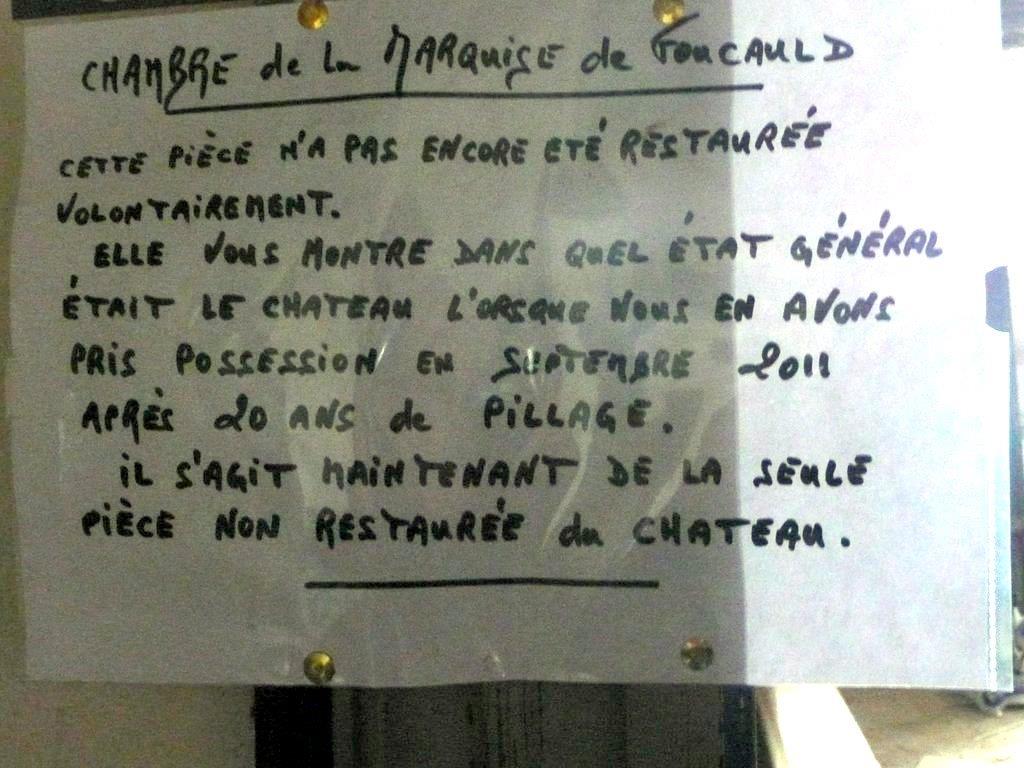 CHAMBRE de la MARQUISE de FOUCAULD
CETTE PIÈCE N'A PAS ENCORE ETÉ RESTAURÉE
VOLONTAIREMENT.
ELLE VOUS MONTRE DANS QUEL ÉTAT GÉNÉRAL
ÉTAIT LE CHATEAU L'ORSQUE NOUS EN AVONS
PRIS POSSESSION EN SEPTEMBRE 2011
APRÈS 20 ANS de PILLAGE.
IL S'AGIT MAINTENANT DE LA SEULE
PIÈCE NON RESTAURÉE du CHATEAU.